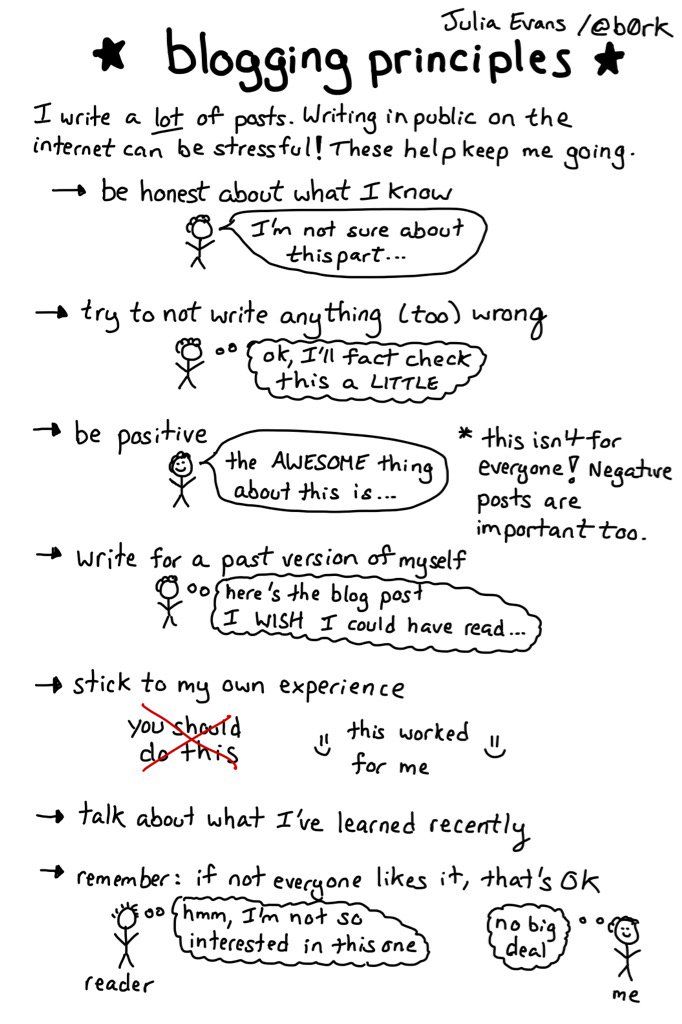 Julia Evans /@b0rk
★ blogging principles ★
I write a lot of posts. Writing in public on the
internet can be stressful! These help keep me going.
→ be honest about what I know
I'm not sure about
this part...
→ try to not write anything (too) wrong
ok, I'll fact check
this a LITTLE
→ be positive
the AWESOME thing
about this is...
* this isn't for
everyone! Negative
posts are
important too.
→ write for a past version of myself
here's the blog post
I WISH I could have read...
→ stick to my own experience
you should
do this
this worked
for me
→ talk about what I've learned recently
→ remember: if not everyone likes it, that's OK
hmm, I'm not so
interested in this one
no big
deal
reader
me